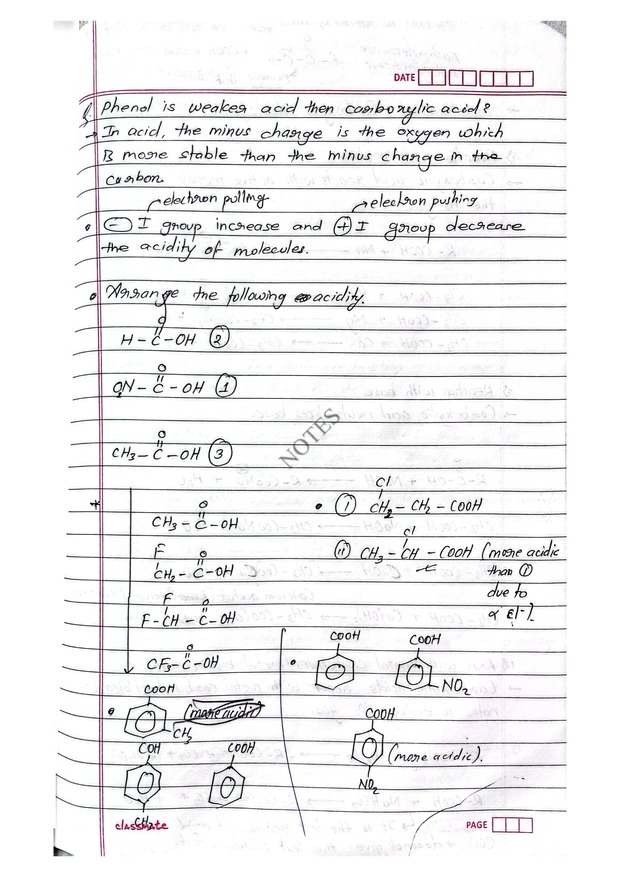 DATE
Q. Phenol is weaker acid then carboxylic acid?
→ In acid, the minus charge is the oxygen which
is more stable than the minus charge in the
carbon.
electron pulling
electron pushing
• (-) I group increase and (+) I group decrease
the acidity of molecules.
• Arrange the following acidity.
O
H - C - OH (2)
O
O₂N - C - OH (1)
O
CH₃ - C - OH (3)
NOTES
O
CH₃ - C - OH
F O
CH₂ - C - OH
F O
F - CH - C - OH
O
CF₃ - C - OH
Cl
• (i) CH₂ - CH₂ - COOH
Cl
(ii) CH₃ - CH - COOH (more acidic
than (i)
due to
COOH
• (more acidic)
CH₃
COH COOH
CH₃
COOH COOH
NO₂
COOH
(more acidic).
NO₂
classmate
PAGE